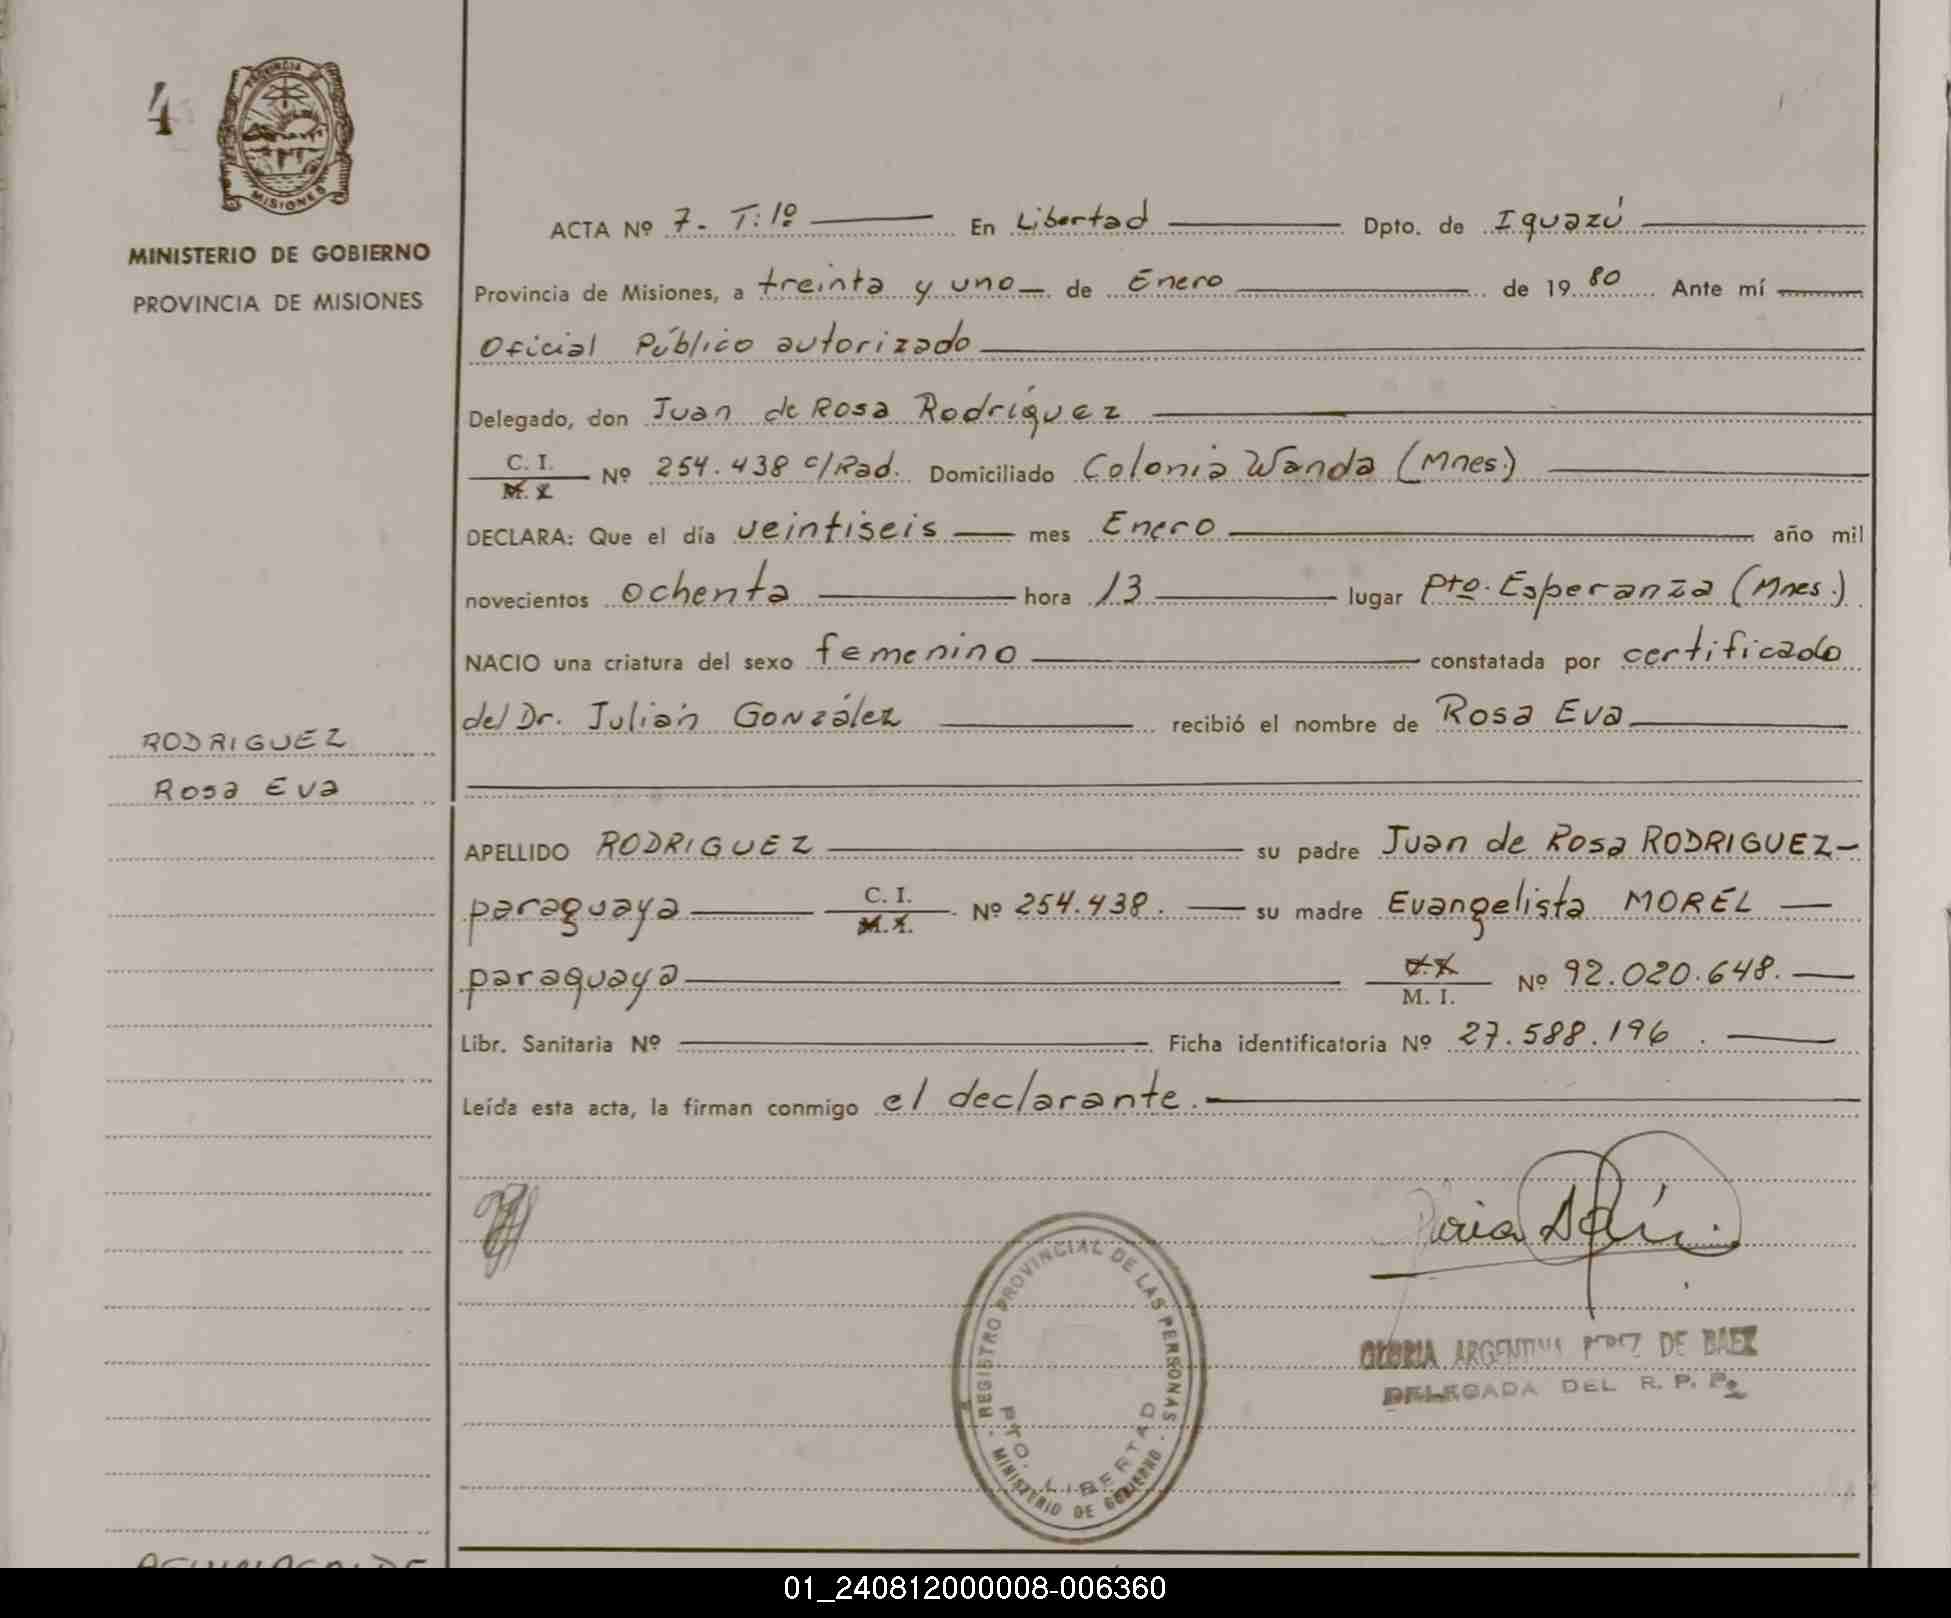 4
PROVINCIA D
MISIONES
MINISTERIO DE GOBIERNO
PROVINCIA DE MISIONES
RODRIGUEZ
Rosa Eva
ACTA Nº 7. T: 1º En Libertad Dpto. de Iguazú
Provincia de Misiones, a treinta y uno de Enero de 19 80 Ante mí
Oficial Público autorizado
Delegado, don Juan de Rosa Rodríguez
C. I. M. I. Nº 254.438 c/Rad. Domiciliado Colonia Wanda (Mnes.)
DECLARA: Que el día veintiseis mes Enero año mil
novecientos ochenta hora 13 lugar Pto. Esperanza (Mnes.)
NACIO una criatura del sexo femenino constatada por certificado
del Dr. Julián González recibió el nombre de Rosa Eva
APELLIDO RODRIGUEZ su padre Juan de Rosa RODRIGUEZ-
paraguaya C. I. M. I. Nº 254.438. su madre Evangelista MOREL
paraguaya C. I. M. I. Nº 92.020.648.
Libr. Sanitaria Nº Ficha identificatoria Nº 27.588.196.
Leída esta acta, la firman conmigo el declarante.
REGISTRO PROVINCIAL DE LAS PERSONAS
PTO. LIBERTAD
MINISTERIO DE GOBIERNO
GLORIA ARGENTINA PEREZ DE BAEZ
DELEGADA DEL R. P. P.
01_240812000008-006360